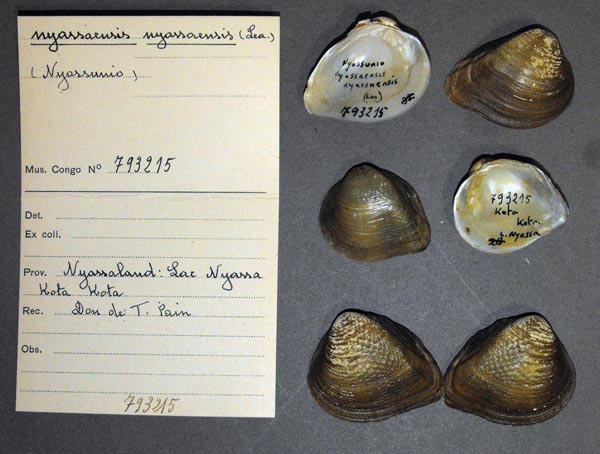 nyassaensis nyassaensis (Lea.)
(Nyassunio)
Mus. Congo Nº 793215
Det.
Ex coll.
Prov. Nyassaland: Lac Nyassa
Kota Kota
Rec. Don de T. Pain
Obs.
793215
Nyassunio
nyassaensis
nyassaensis
(Lea)
793215
793215
Kota
Kota
L. Nyassa